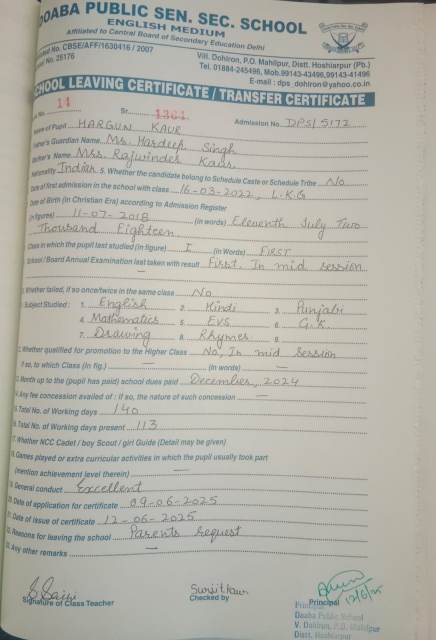 DOABA PUBLIC SEN. SEC. SCHOOL
ENGLISH MEDIUM
Affiliated to Central Board of Secondary Education Delhi
No. CBSE/AFF/1630416 / 2007
No. 26176
Vill. Dohlron, P.O. Mahilpur, Distt. Hoshiarpur (Pb.)
Tel. 01884-245496, Mob.99143-43496,99143-41496
E-mail : dps_dohlron@yahoo.co.in
SCHOOL LEAVING CERTIFICATE / TRANSFER CERTIFICATE
No. 14 Sr. 1364 Admission No. DPS/5172
Name of Pupil HARGUN KAUR
Father's Guardian Name Mr. Hardeep Singh
Mother's Name Mrs. Rajwinder Kaur
Nationality Indian 5. Whether the candidate belong to Schedule Caste or Schedule Tribe No
Date of first admission in the school with class 16-03-2022, L.K.G
Date of Birth (in Christian Era) according to Admission Register
(in figures) 11-07-2018 (in words) Eleventh July Two
Thousand Eighteen
Class in which the pupil last studied (in figure) I (in Words) FIRST
School / Board Annual Examination last taken with result First, In mid session
—
Whether failed, if so once/twice in the same class No
Subject Studied : 1. English 2. Hindi 3. Punjabi
4. Mathematics 5. EVS 6. G.K
7. Drawing 8. Rhymes 9.
Whether qualified for promotion to the Higher Class No, In mid session
If so, to which Class (in fig.) — (in words) —
Month up to the (pupil has paid) school dues paid December, 2024
Any fee concession availed of : if so, the nature of such concession —
Total No. of Working days 140
Total No. of Working days present 113
17. Whether NCC Cadet / boy Scout / girl Guide (Detail may be given)
Games played or extra curricular activities in which the pupil usually took part
(mention achievement level therein) —
General conduct Excellent
Date of application for certificate 09-06-2025
Date of issue of certificate 12-06-2025
Reasons for leaving the school Parents request
Any other remarks —
Signature of Class Teacher
Surjit Kaur
Checked by
12/6/25
Principal
Principal
Doaba Public School
V. Dohlron, P.O. Mahilpur
Distt. Hoshiarpur